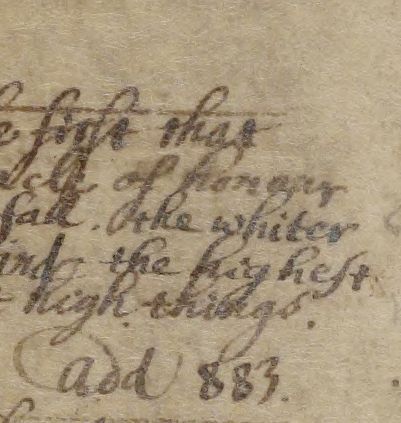 e first that
of honour
fall. the whiter
ind the highest
high things.
add 883.